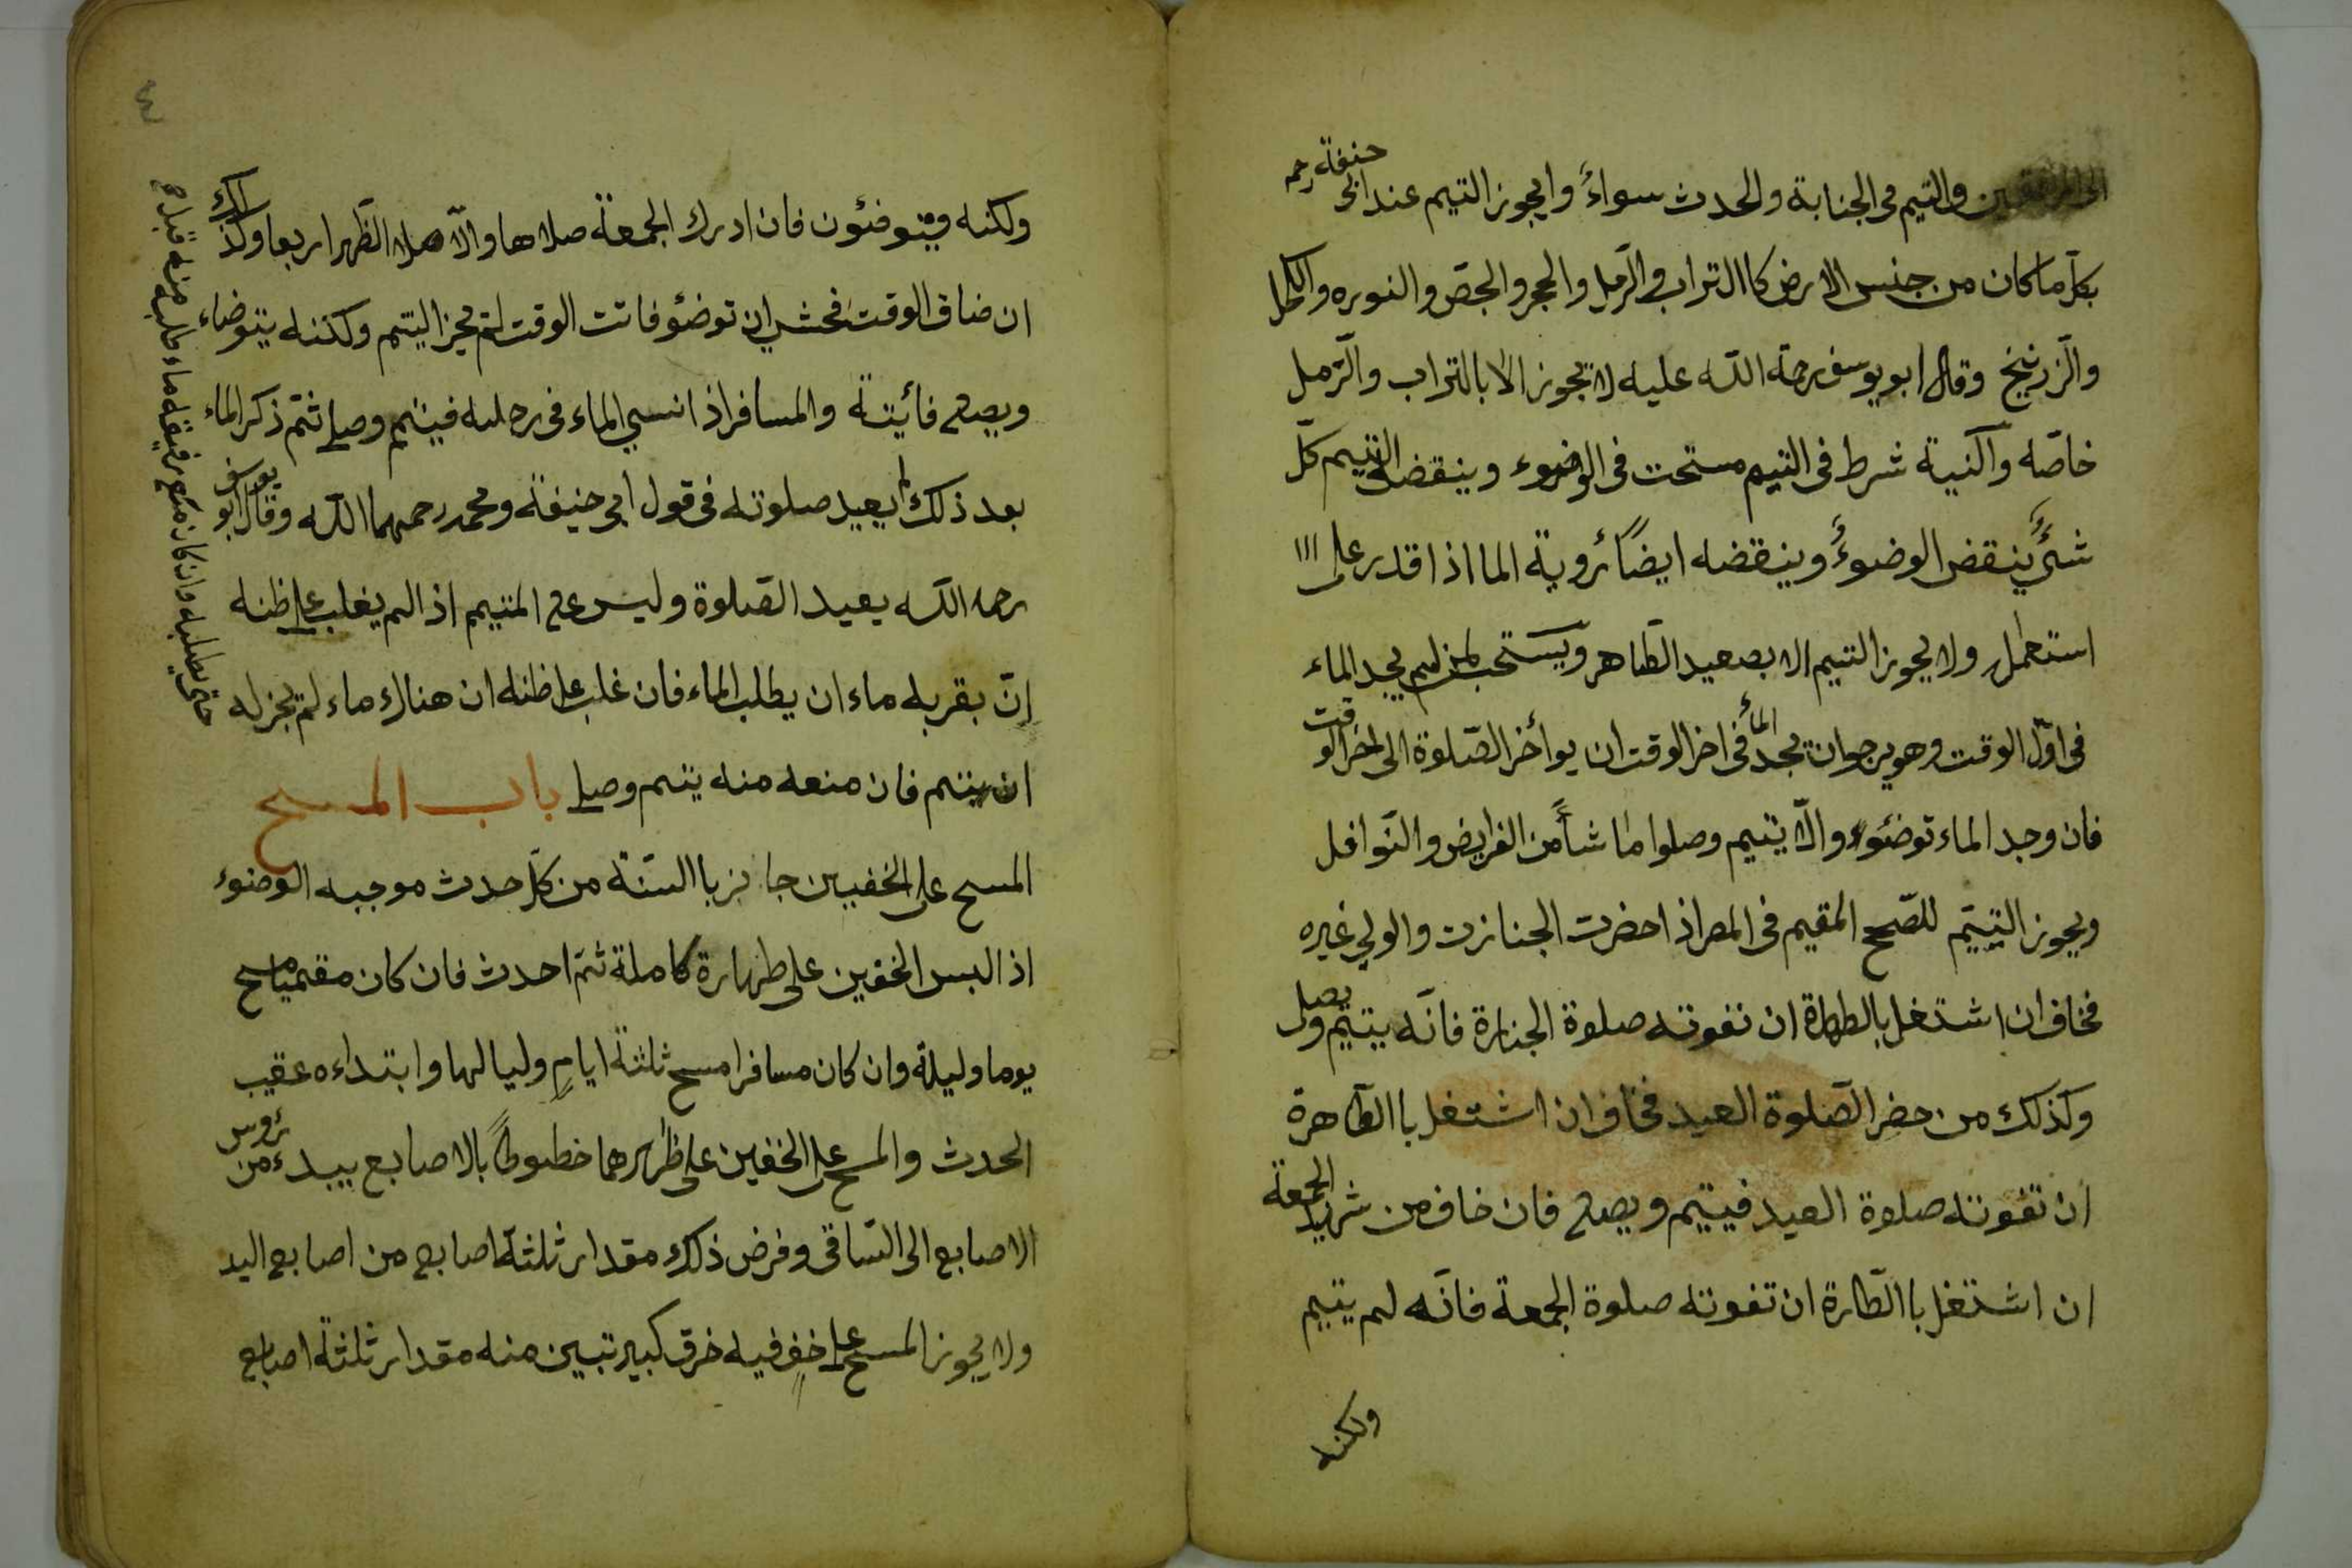 الى المرفقين والتيم فى الجنابة والحدث سواءً وايجوز التيمم عند ابى حنيفة رحم
بكلّ ما كان من جنس الارض كاالتراب والرّمل والحجر والجصّ والنوره والكحل
والزّرنيخ وقال ابو يوسف رحمة اللّه عليه لا تجوز الا بالتراب والرّمل
خاصّه والنية شرط فى التيم مستحت فى الوضوء وينقض التيم كلّ
شئٍ ينقض الوضوءُ وينقضه ايضًا رؤية الما اذا قدر على ااا
استعمل ولا يجوز التيم الا بصعيد الطّاهر ويستحب لمن لم يجد الماء
فى اوّل الوقت وهو يرجوا ان يجد الماء فى اخر الوقت ان يوأخر الصّلوة الى اخر الوقت
فان وجد الماء توضئوء والّا يتيم وصلوا ما شاءَ من الفرايض والنّوافل
ويجوز التيتم للصّحح المقيم فى المصر اذا حضرت الجنازت والولي غيره
فخاف ان اشتغل بالطهاة ان تفوته صلوة الجنازة فانّه يتيم ويصل
وكذلك من حضر الصّلوة العيد فخاف ان اشتغل باالطّاهرة
ان تفوته صلوة العيد فيتيم ويصلى فان خاف من شهد الجمعة
ان اشتغل باالطّارة ان تفوته صلوة الجمعة فانّه لم يتيم
ولكنه
٤
ولكنه ويتوضئون فان ادرك الجمعة صلاها والّا صلا الظّهر اربعا وكذلك
ان ضاق الوقت فخشى ان توضئو فاتت الوقت لم يجز اليتم ولكنه يتوضاء
ويصلى فائيتة والمسافر اذا نسي الماء فى رحله فيتم وصلى ثمّ ذكر الماء
بعد ذلك لم يعيد صلوته فى قول ابى حنيفة ومحمد رحمهما اللّه وقال ابو يوسف
رحمه اللّه يعيد الصّلوة وليس على المتيم اذا لم يغلب على ظنه
انّ بقربه ماء ان يطلب الماء فان غلب على ظنه ان هناك ماء لم يجز له
ان يتم فان منعه منه يتم وصلى باب المسح
المسح على الخفيين جايز باالسّنة من كلّ حدث موجبه الوضوء
اذا لبس الخفين على طهارة كاملة ثمّ احدث فان كان مقميا مسح
يوما وليلة وان كان مسافرا مسح ثلثة ايامٍ وليالها وابتداءه عقيب
الحدث والمسح على الخفين على ظاهرهما خطوطًا بالاصابع يبدء من رؤس
الاصابع الى السّاق وفرض ذلك مقدار ثلثة اصابع من اصابع اليد
ولا يجوز المسح على خفٍ فيه خرق كبير تبين منه مقدار ثلثة اصابع
حتى يطلبه وان كان مع رفيقه ماء طلبه منه قبل